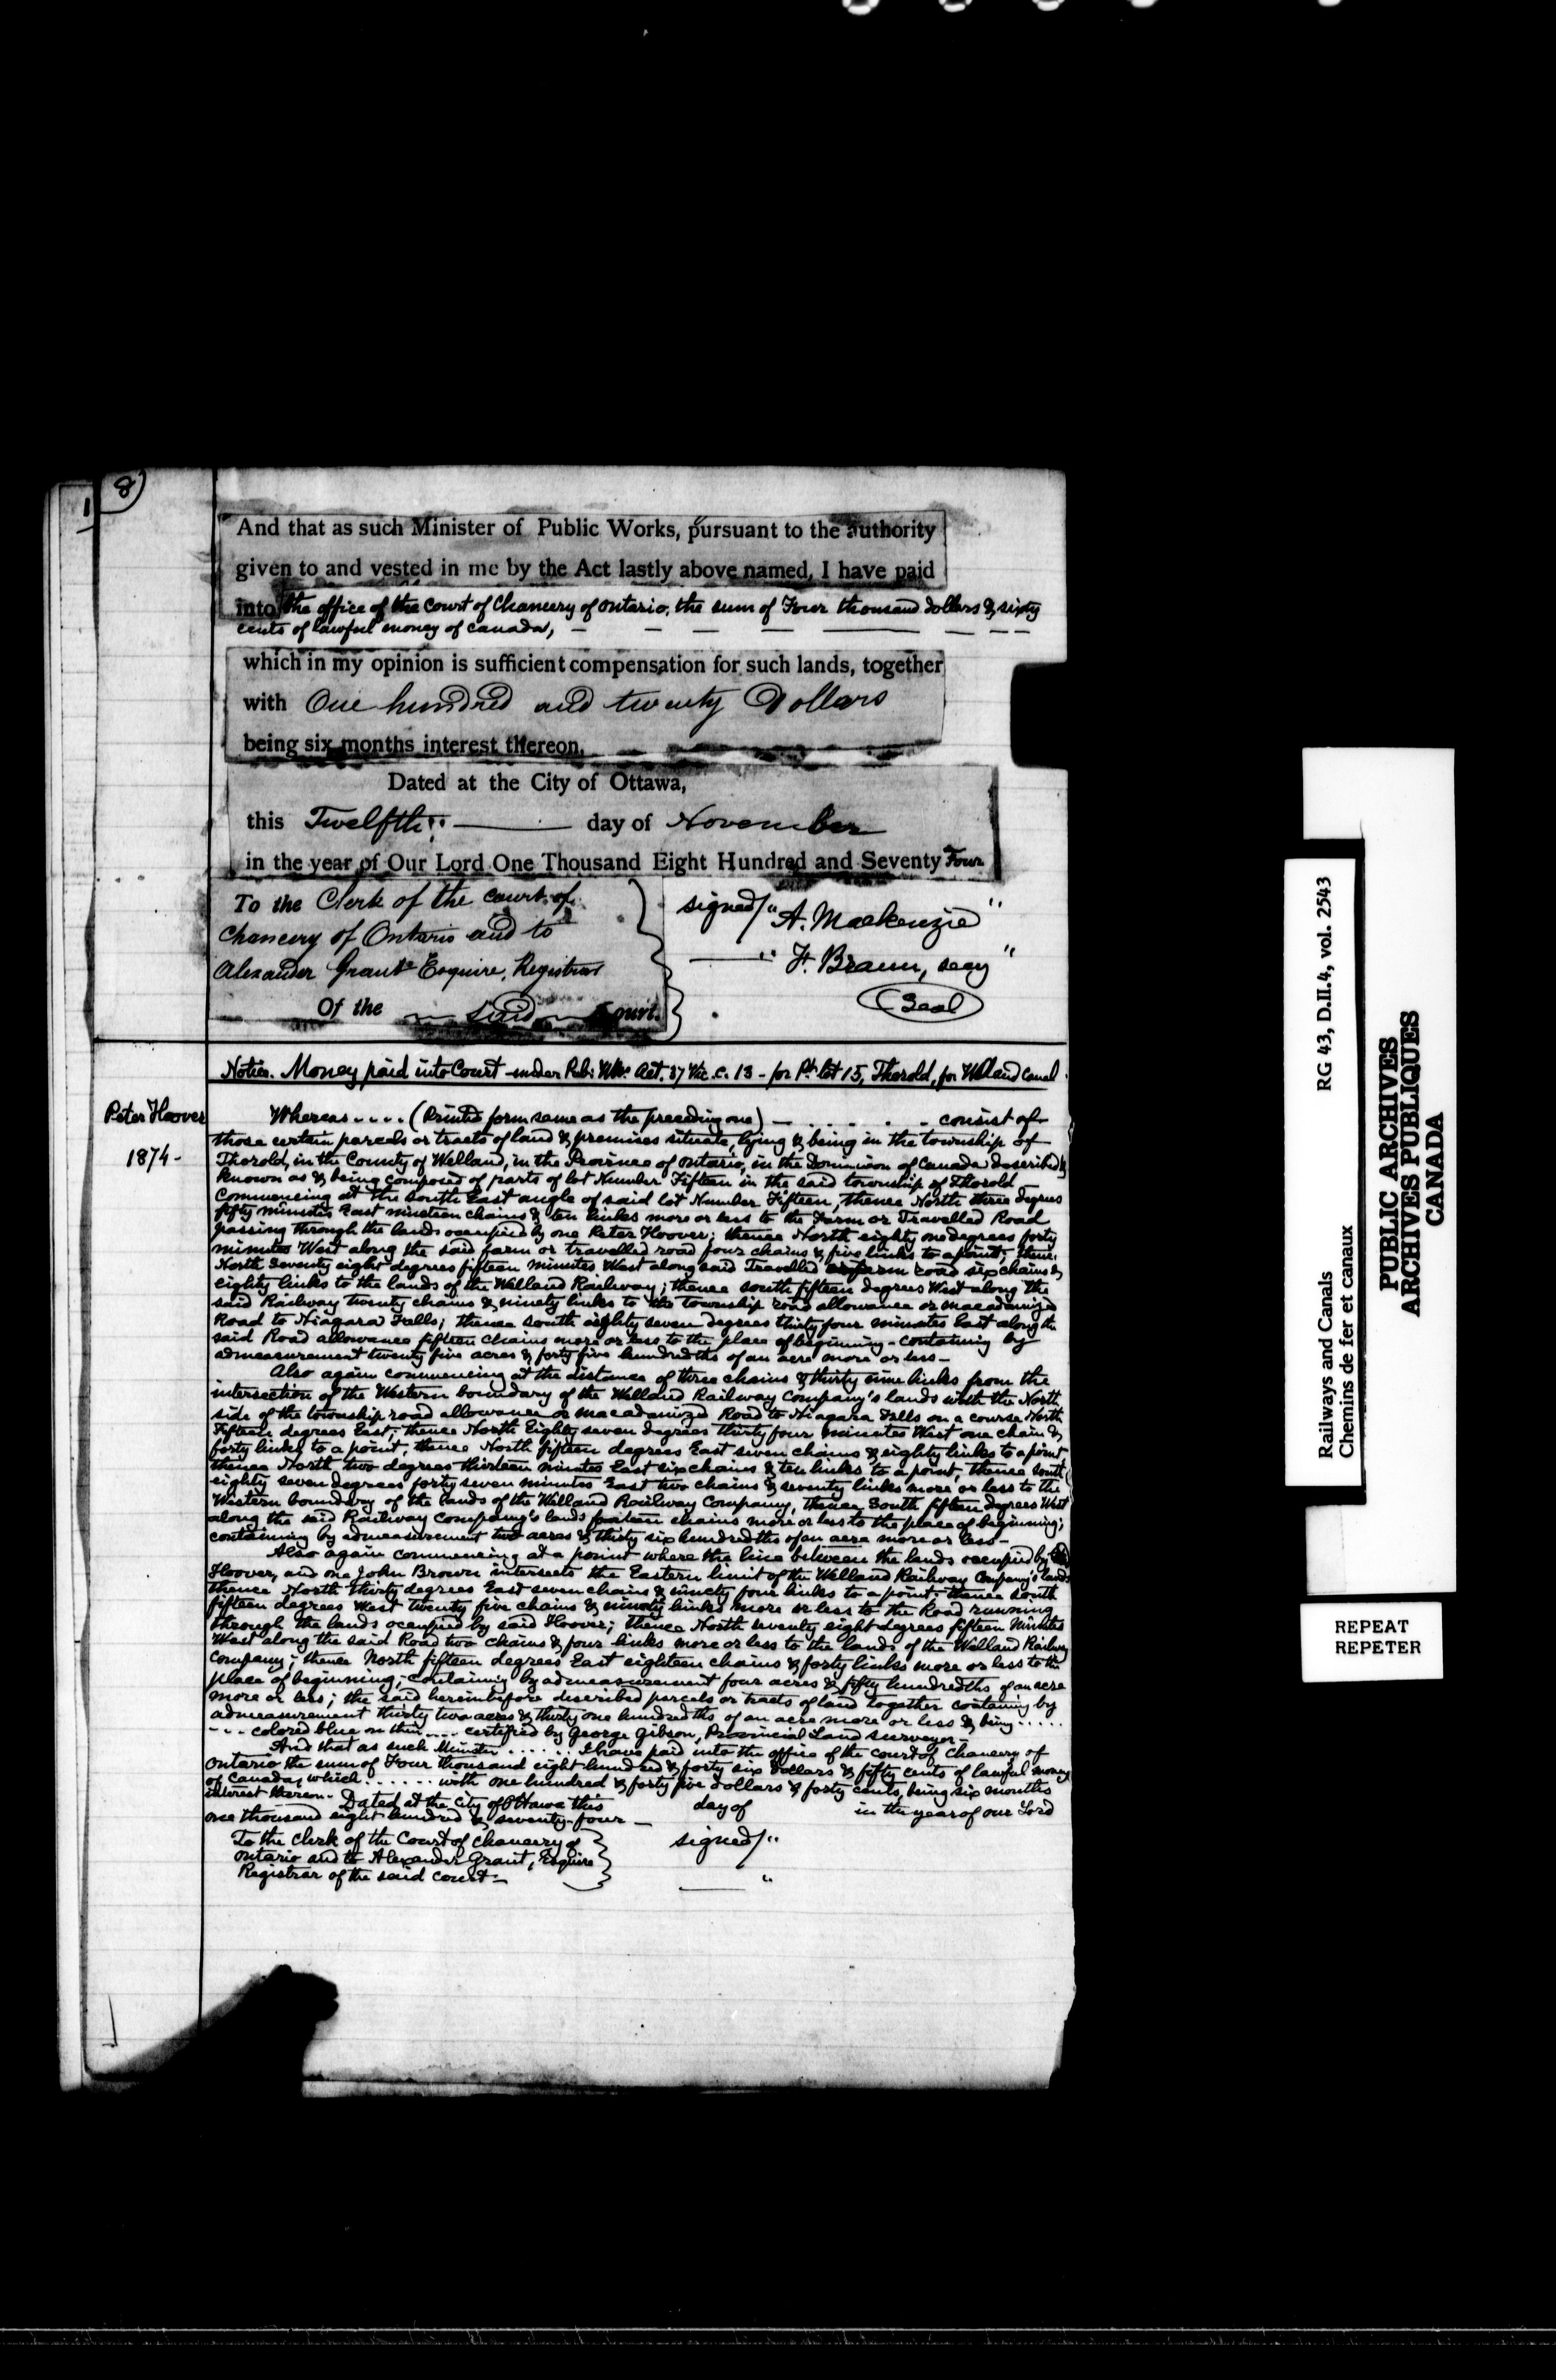 8)
1
And that as such Minister of Public Works, pursuant to the authority
given to and vested in me by the Act lastly above named, I have paid
into the office of the Court of Chancery of Ontario, the sum of Four thousand dollars & sixty
cents of lawful money of Canada,
which in my opinion is sufficient compensation for such lands, together
with One hundred and twenty Dollars
being six months interest thereon.
Dated at the City of Ottawa,
this Twelfth day of November
in the year of Our Lord One Thousand Eight Hundred and Seventy Four
To the Clerk of the Court of
Chancery of Ontario and to
Alexander Grant Esquire, Registrar
Of the said Court.
signed/ "A. Mackenzie"
" F. Braun, secy "
Seal
Notice. Money paid into Court under Pub: Wks. Act. 37 Vic. c. 13 - for Pt. lot 15, Thorold, for Welland Canal.
Peter Hoover
1874-
Whereas .... (Printed form same as the preceding one) - . . . . . consist of
those certain parcels or tracts of land & premises situate, lying & being in the township of
Thorold, in the County of Welland, in the Province of Ontario, in the Dominion of Canada described &
known as & being composed of parts of lot Number Fifteen in the said township of Thorold
Commencing at the South East angle of said lot Number Fifteen, thence North three degrees
fifty minutes East nineteen chains & ten links more or less to the Farm or Travelled Road
passing through the lands occupied by one Peter Hoover; thence North eighty one degrees forty
minutes West along the said farm or travelled road four chains & five links to a point; thence
North seventy eight degrees fifteen minutes West along said Travelled or farm road six chains &
eighty links to the lands of the Welland Railway; thence south fifteen degrees West along the
said Railway twenty chains & ninety links to the township road allowance or macadamized
Road to Niagara Falls; thence south eighty seven degrees thirty four minutes East along the
said Road allowance fifteen chains more or less to the place of beginning - containing by
admeasurement twenty five acres & forty five hundredths of an acre more or less -
Also again commencing at the distance of three chains & thirty nine links from the
intersection of the Western boundary of the Welland Railway Company's lands with the North
side of the township road allowance or macadamized Road to Niagara Falls on a course North
Fifteen degrees East; thence North Eighty seven degrees thirty four minutes West one chain &
forty links to a point, thence North fifteen degrees East seven chains & eighty links to a point
thence North two degrees thirteen minutes East six chains & ten links to a point, thence South
eighty seven degrees forty seven minutes East two chains & seventy links more or less to the
Western boundary of the lands of the Welland Railway Company, thence South fifteen degrees West
along the said Railway Company's lands fourteen chains more or less to the place of beginning;
containing by admeasurement two acres & thirty six hundredths of an acre more or less -
Also again commencing at a point where the line between the lands occupied by
Hoover, and one John Brown intersects the Eastern limit of the Welland Railway Company's lands
thence North thirty degrees East seven chains & ninety four links to a point - thence South
fifteen degrees West twenty five chains & ninety links more or less to the Road running
through the lands occupied by said Hoover; thence North seventy eight degrees fifteen Minutes
West along the said Road two chains & four links more or less to the lands of the Welland Railway
Company; thence North fifteen degrees East eighteen chains & forty links more or less to the
place of beginning; containing by admeasurement four acres & fifty hundredths of an acre
more or less; the said hereinbefore described parcels or tracts of land together containing by
admeasurement thirty two acres & thirty one hundredths of an acre more or less & being .....
--- colored blue on this .... certified by George Gibson, Provincial Land surveyor -
And that as such Minister ...... I have paid into the office of the court of Chancery of
Ontario the sum of Four thousand eight hundred & forty six dollars & fifty cents of lawful money
of Canada, which ...... with one hundred & forty five dollars & forty cents, being six months
interest thereon. Dated at the City of Ottawa this day of in the year of our Lord
one thousand eight hundred & seventy-four -
To the Clerk of the Court of Chancery of
Ontario and to Alexander Grant, Esquire
Registrar of the said court -
signed/ "
"
RG 43, D.II.4, vol. 2543
Railways and Canals
Chemins de fer et canaux
PUBLIC ARCHIVES
ARCHIVES PUBLIQUES
CANADA
REPEAT
REPETER